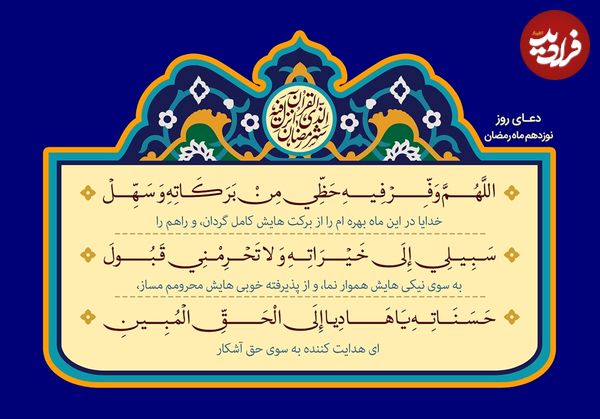 فرادید
دعـای روز
نوزدهم ماه رمضان
شهر رمضان الذی انزل فیه القرآن
اللَّهُمَّ وَفِّرْ فِيهِ حَظِّي مِنْ بَرَكَاتِهِ وَ سَهِّلْ
خدایا در این ماه بهره ام را از برکت هایش کامل گردان، و راهم را
سَبِيلِي إِلَى خَيْرَاتِهِ وَ لَا تَحْرِمْنِي قَبُولَ
به سوی نیکی هایش هموار نما، و از پذیرفته خوبی هایش محرومم مساز،
حَسَنَاتِهِ يَا هَادِيا إِلَى الْحَقِّ الْمُبِينِ
ای هدایت کننده به سوی حق آشکار